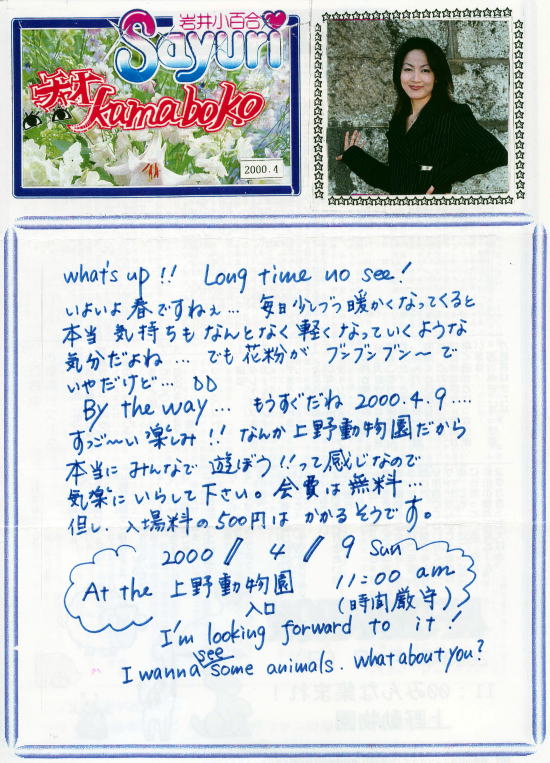 岩井小百合
Sayuri
kamaboko
2000.4
what's up !! Long time no see!
いよいよ 春ですねぇ… 毎日少しづつ暖かくなってくると
本当 気持ちも なんとなく 軽くなっていくような
気分だよね … でも 花粉が ブンブンブン〜で
いやだけど…
By the way… もうすぐだね 2000.4.9 ….
すっご〜い 楽しみ !! なんか上野動物園だから
本当に みんなで 遊ぼう!!って感じなので
気楽に いらして下さい。会費は 無料…
但し、入場料の500円は かかるそうです。
2000 / 4 / 9 Sun
At the 上野動物園 11:00 am
入口 (時間厳守)
I'm looking forward to it!
I wanna see some animals. what about you?
11:00みんな集まれ!
上野動物園